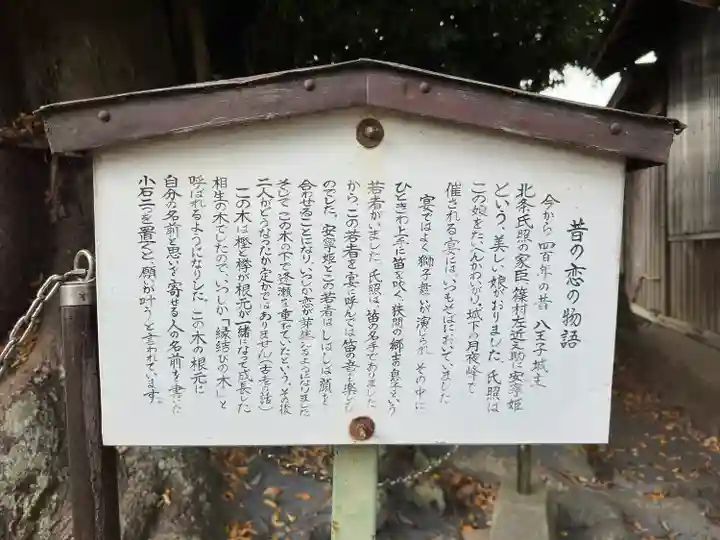 昔の恋の物語
今から四百年の昔 八王子城主
北条氏照の家臣 篠村左近之助に安寧姫
という、美しい娘がおりました。氏照は
この娘をたいへんかわいがり、城下の月夜峰で
催される宴では、いつもそばにおいていました
宴ではよく獅子舞いが演じられ その中に
ひときわ上手に笛を吹く、狭間の郷士の息子という
若者がいました。氏照は、笛の名手でありました
から、この若者を宴に呼んでは笛の音を楽しむ
のでした。安寧姫とこの若者はしばしば顔を
合わせることになり、いつしか恋が芽生えるようになりました
そしてこの木の下で逢瀬を重ねていたという。その後
二人がどうなったか定かではありません(古老の話)
この木は樫と欅が根元が一緒になって成長した
相生の木でしたので、いつしか「縁結びの木」と
呼ばれるようになりました。この木の根元に
自分の名前と思いを寄せる人の名前を書いた
小石二つを置くと、願いが叶うと言われています。